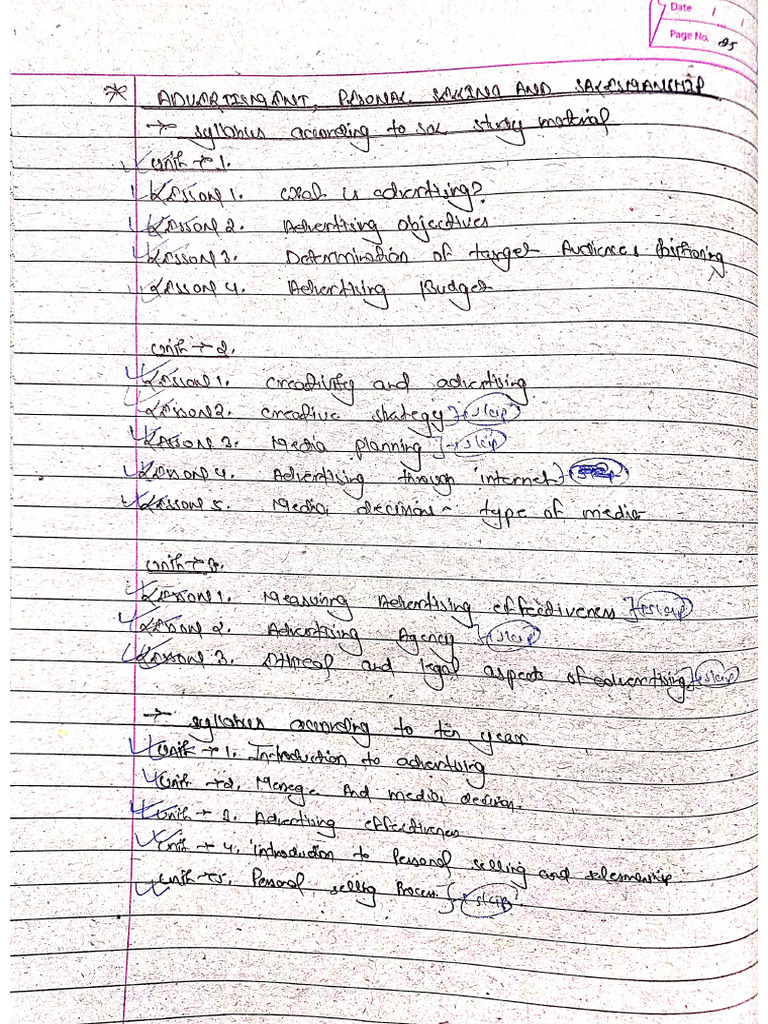 Date
Page No. 25
* ADVERTISEMENT, PERSONAL SELLING AND SALESMANSHIP
→ syllabus according to sol study material
Unit → 1.
Lesson 1. What is advertising?
Lesson 2. Advertising objectives
Lesson 3. Determination of target Audiences
Lesson 4. Advertising Budget
Unit → 2.
Lesson 1. creativity and advertising
Lesson 2. creative strategy } → skip
Lesson 3. Media planning } → skip
Lesson 4. Advertising through internet }
Lesson 5. Media decisions - type of media
Unit → 3.
Lesson 1. Measuring Advertising effectiveness } → skip
Lesson 2. Advertising Agency } → skip
Lesson 3. Ethical and legal aspects of advertising } → skip
→ syllabus according to ten year
Unit → 1. Introduction to advertising
Unit → 2. Message And media decision.
Unit → 3. Advertising effectiveness
Unit → 4. introduction to Personal selling and salesmanship
Unit → 5. Personal selling Process. } → skip